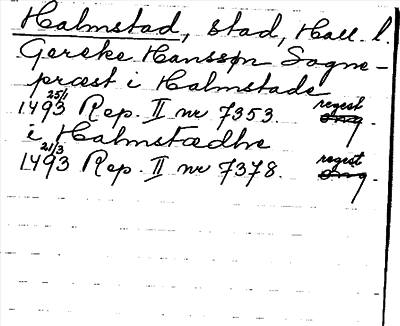 Halmstad, stad, Hall. l.
Gereke Hanssøn Sogne-
præst i Halmstade
1493 25/1 Rep. II nr 7353. regest
i Halmstædhe
1493 21/3 Rep. II nr 7378. regest